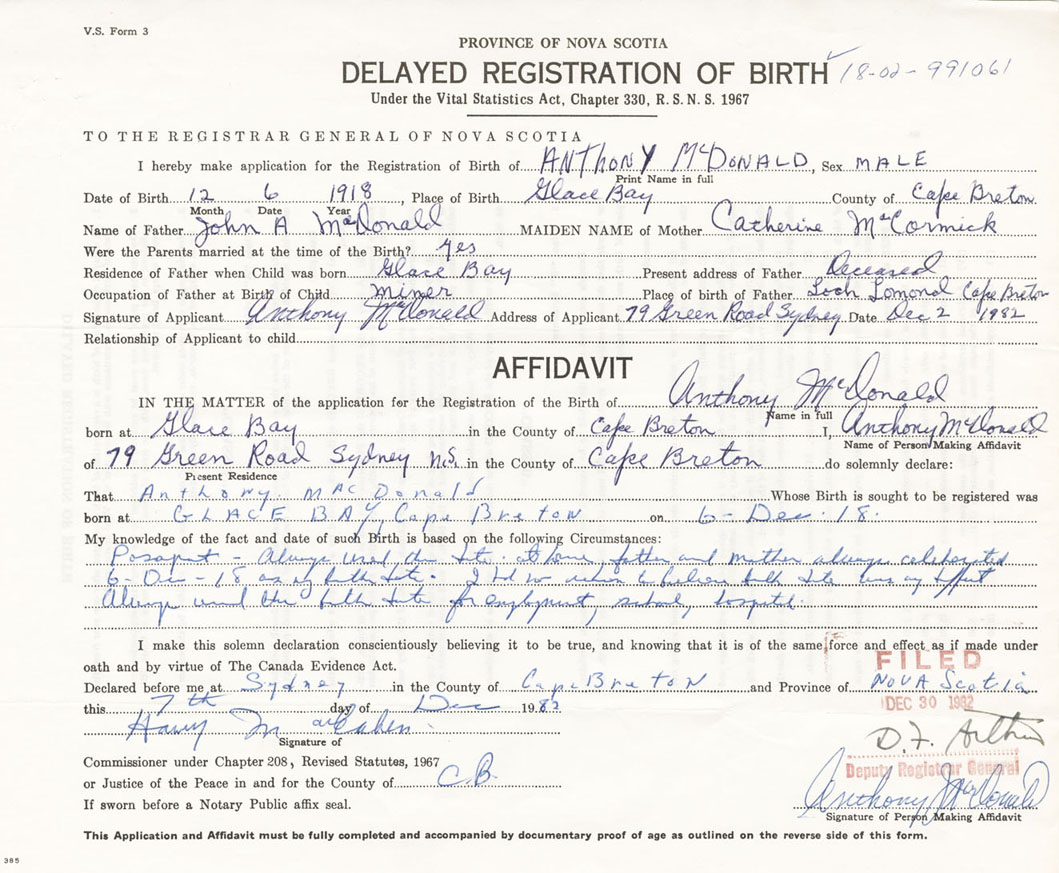 V.S. Form 3
PROVINCE OF NOVA SCOTIA
DELAYED REGISTRATION OF BIRTH 18-02-991061
Under the Vital Statistics Act, Chapter 330, R. S. N. S. 1967
TO THE REGISTRAR GENERAL OF NOVA SCOTIA
I hereby make application for the Registration of Birth of ANTHONY McDONALD, Sex MALE
Print Name in full
Date of Birth 12 6 1918, Place of Birth Glace Bay County of Cape Breton
Month Date Year
Name of Father John A McDonald MAIDEN NAME of Mother Catherine McCormick
Were the Parents married at the time of the Birth? yes
Residence of Father when Child was born Glace Bay Present address of Father Deceased
Occupation of Father at Birth of Child miner Place of birth of Father Loch Lomond Cape Breton
Signature of Applicant Anthony McDonald Address of Applicant 79 Green Road Sydney Date Dec 2 1982
Relationship of Applicant to child
AFFIDAVIT
IN THE MATTER of the application for the Registration of the Birth of Anthony McDonald
Name in full
born at Glace Bay in the County of Cape Breton I, Anthony McDonald
Name of Person Making Affidavit
of 79 Green Road Sydney N.S. in the County of Cape Breton do solemnly declare:
Present Residence
That Anthony MacDonald Whose Birth is sought to be registered was
born at GLACE BAY, Cape Breton on 6-Dec. 18.
My knowledge of the fact and date of such Birth is based on the following Circumstances:
Always used this date at home, father and mother always celebrated
6-Dec-18 as my birth date. I had no reason to believe birth date
Always used this birth date for employment, school, hospital.
I make this solemn declaration conscientiously believing it to be true, and knowing that it is of the same force and effect as if made under
oath and by virtue of The Canada Evidence Act.
FILED
Declared before me at Sydney in the County of Cape Breton and Province of Nova Scotia
this 7th day of Dec 1982
DEC 30 1982
Harry
Signature of
D. F. Arthur
Commissioner under Chapter 208, Revised Statutes, 1967
Deputy Registrar General
or Justice of the Peace in and for the County of C.B.
Anthony McDonald
If sworn before a Notary Public affix seal.
Signature of Person Making Affidavit
This Application and Affidavit must be fully completed and accompanied by documentary proof of age as outlined on the reverse side of this form.
385